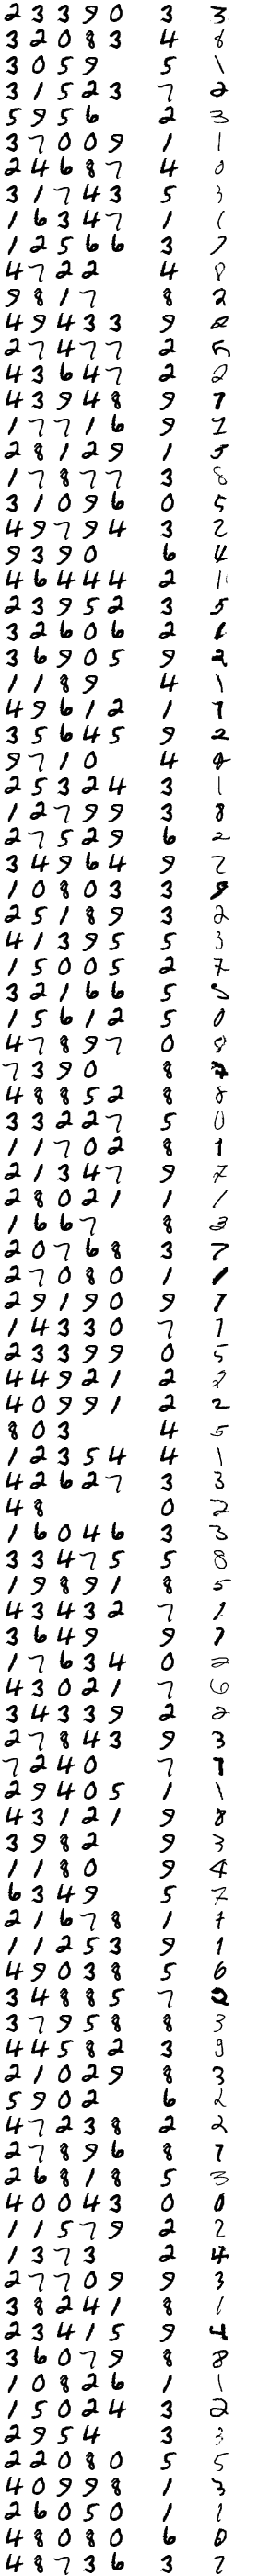 23390 3 3
32083 4 8
3059 5 1
31523 7 2
5956 2 3
37009 1 1
24687 4 0
31743 5 3
16347 1 1
12566 3 7
4722 4 8
9817 8 2
49433 9 2
27477 2 5
43647 2 2
43948 9 7
17716 9 1
28129 1 5
17877 3 8
31096 0 5
49794 3 2
9390 6 4
46444 2 1
23952 3 5
32606 2 6
36905 9 2
1189 4 1
49612 1 7
35645 9 2
9710 4 8
25324 3 1
12799 3 8
27529 6 2
34964 9 2
10803 3 9
25189 3 2
41395 5 3
15005 2 7
32166 5 5
15612 5 0
47897 0 8
7390 8 7
48852 8 8
33227 5 0
11702 8 1
21347 9 7
28021 1 1
1667 8 3
20768 3 7
27080 1 1
29190 9 7
14330 7 1
23399 0 5
44921 2 2
40991 2 2
803 4 5
12354 4 1
42627 3 3
48 0 2
16046 3 3
33475 5 8
19891 8 5
43432 7 1
3649 9 7
17634 0 2
43021 7 6
34339 2 2
27843 9 3
7240 7 1
29405 1 1
43121 9 8
3982 9 3
1180 9 4
6349 5 7
21678 1 7
11253 9 1
49038 5 6
34885 7 2
37958 8 3
44582 3 9
21029 8 3
5902 6 2
47238 2 2
27896 8 7
26818 5 3
40043 0 0
11579 2 2
1373 2 4
27709 9 3
38241 8 1
23415 9 4
36079 8 8
10826 1 1
15024 3 2
2954 3 3
22080 5 5
40998 1 3
26050 1 1
48080 6 0
48736 3 2